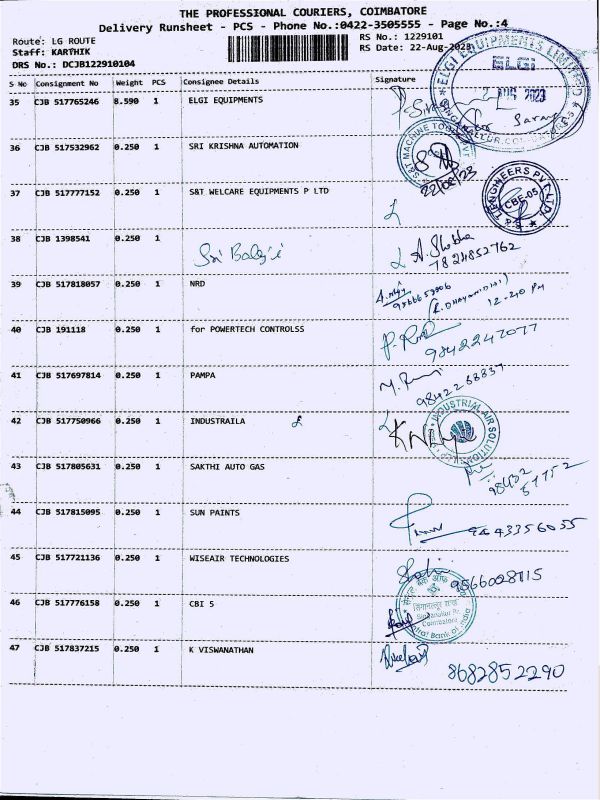 THE PROFESSIONAL COURIERS, COIMBATORE
Delivery Runsheet - PCS - Phone No.:0422-3505555 - Page No.:4
Route: LG ROUTE
RS No.: 1229101
Staff: KARTHIK
RS Date: 22-Aug-2023
DRS No.: DCJB122910104
ELGI EQUIPMENTS LIMITED
ELGI
AUG 2023
S No Consignment No Weight PCS Consignee Details Signature
35 CJB 517765246 8.590 1 ELGI EQUIPMENTS
Saran
36 CJB 517532962 0.250 1 SRI KRISHNA AUTOMATION
S&T MACHINE TOOLS
22/08/23
37 CJB 517777152 0.250 1 S&T WELCARE EQUIPMENTS P LTD
CBE-05
38 CJB 1398541 0.250 1
Sri Balaji
A. Shobha
7824852762
39 CJB 517818057 0.250 1 NRD
12-40 PM
40 CJB 191118 0.250 1 for POWERTECH CONTROLSS
9842247077
41 CJB 517697814 0.250 1 PAMPA
42 CJB 517750966 0.250 1 INDUSTRAILA
INDUSTRIAL AIR SOLUTION
43 CJB 517805631 0.250 1 SAKTHI AUTO GAS
98432
57752
44 CJB 517815095 0.250 1 SUN PAINTS
9443356055
45 CJB 517721136 0.250 1 WISEAIR TECHNOLOGIES
9566028115
46 CJB 517776158 0.250 1 CBI 5
Coimbatore
Central Bank of India
47 CJB 517837215 0.250 1 K VISWANATHAN
8682852290